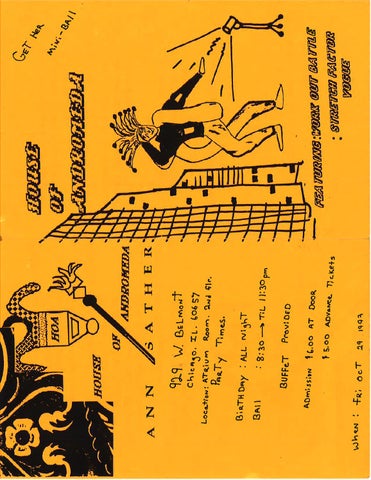 GET HER
MINI-BALL
HOUSE
OF
ANDROMEDA
FEATURING:WORK OUT BATTLE
: STRETCH FACTOR
VOGUE
HOUSE OF ANDROMEDA
ANN SATHER
929 W. BELMONT
Chicago, IL. 60657
Location: ATRIUM ROOM. 2nd Flr.
PARTY TIMES.
BIRTHDAY : ALL NIGHT
BALL : 8:30 → TIL 11:30pm
BUFFET PROVIDED
ADMISSION $6.00 AT DOOR
$5.00 ADVANCE TICKETS
WHEN: FRI OCT 29 1993